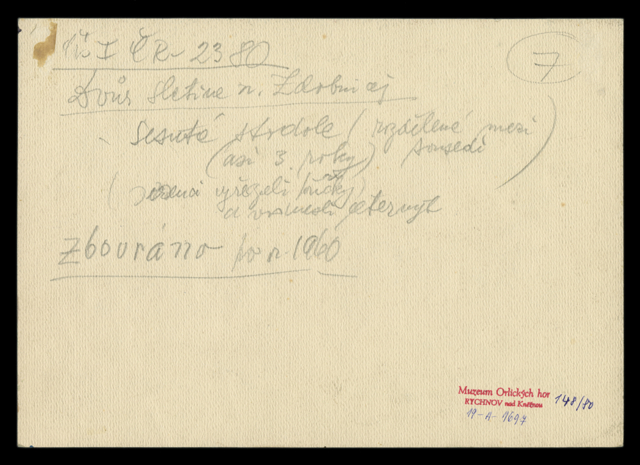 I ČR - 2380
7
Dvůr Slatina n. Zdobnicí
Sesuté stodole (rozdělené mezi
(asi 3 roky) sousedi
( vyřezali
a eternyt
Zbouráno po r. 1960
Muzeum Orlických hor
RYCHNOV nad Kněžnou
148/80
19-A-9697